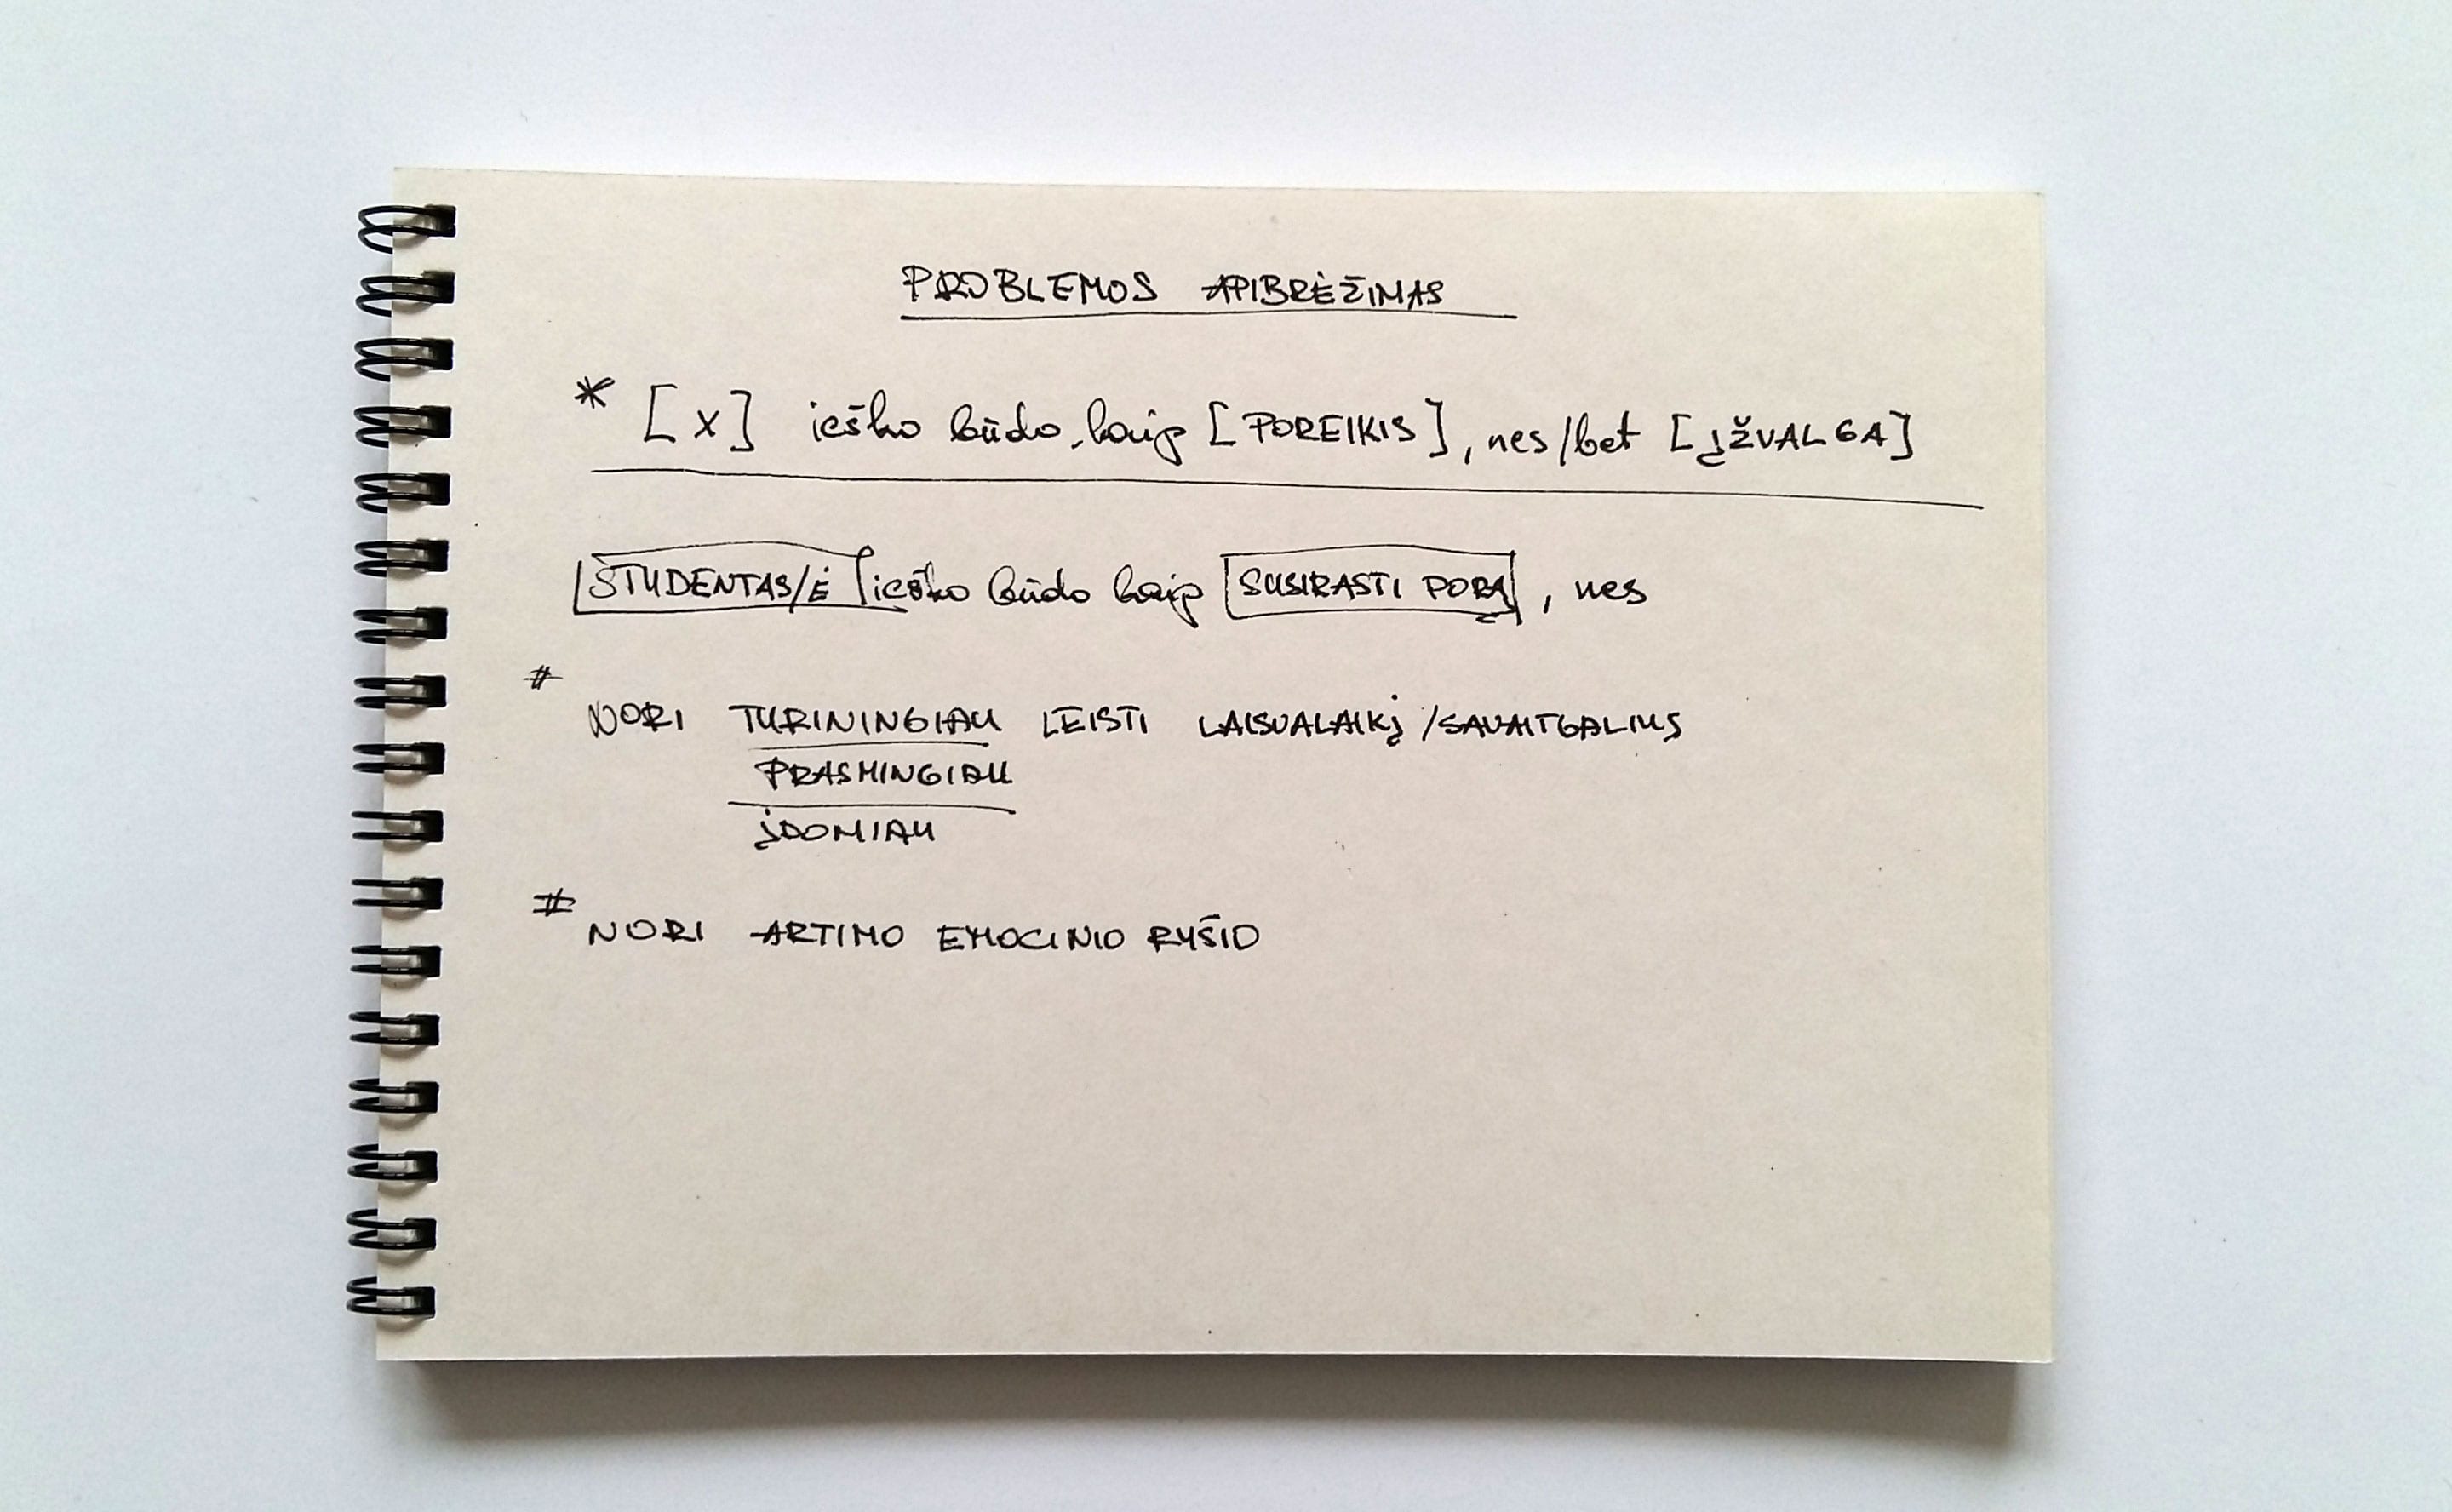 PROBLEMOS APIBRĖŽIMAS
* [X] ieško būdo, kaip [POREIKIS], nes/bet [ĮŽVALGA]
STUDENTAS/Ė ieško būdo kaip SUSIRASTI PORĄ, nes
# NORI TURININGIAU LEISTI LAISVALAIKĮ/SAVAITGALIUS
PRASMINGIAU
ĮDOMIAU
# NORI ARTIMO EMOCINIO RYŠIO